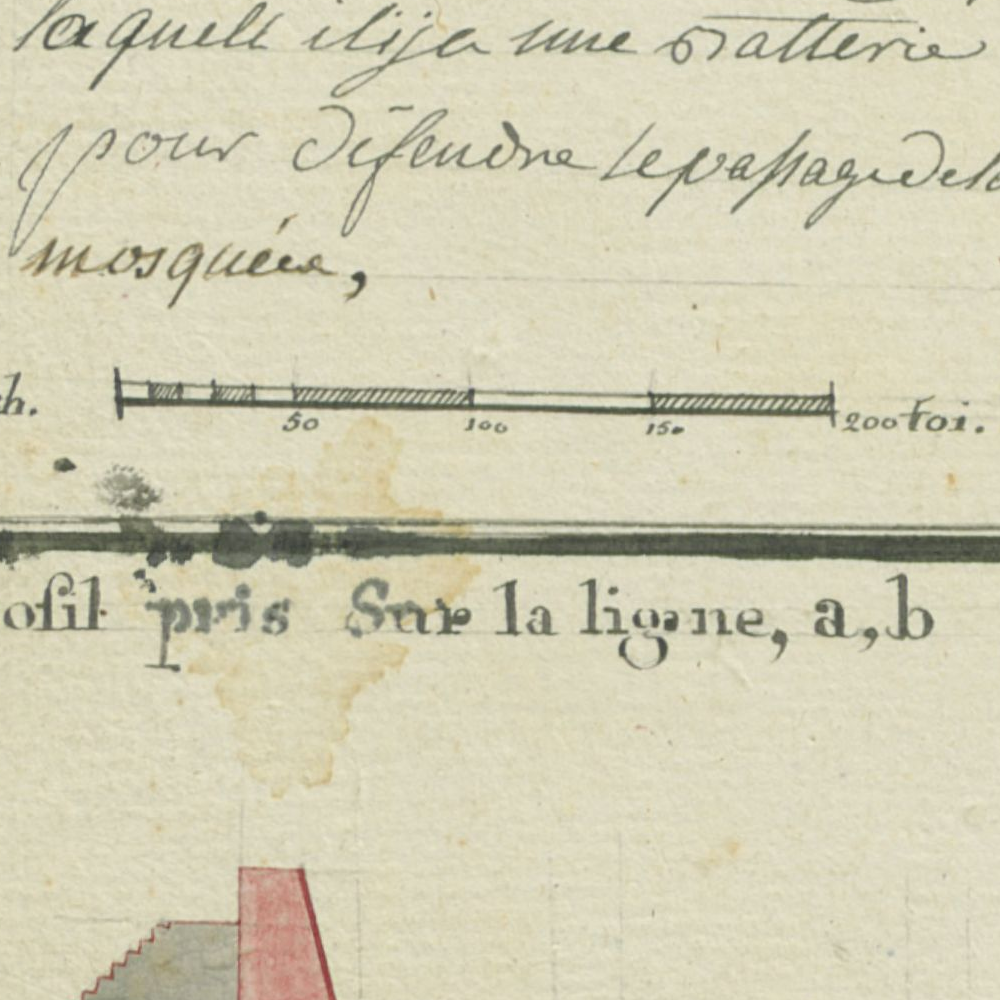 laquell ilija une Batterie
pour défendre le passage de la
mosquéee,
h.
50 100 150 200 Toi.
ofil pris Sur la ligne, a, b